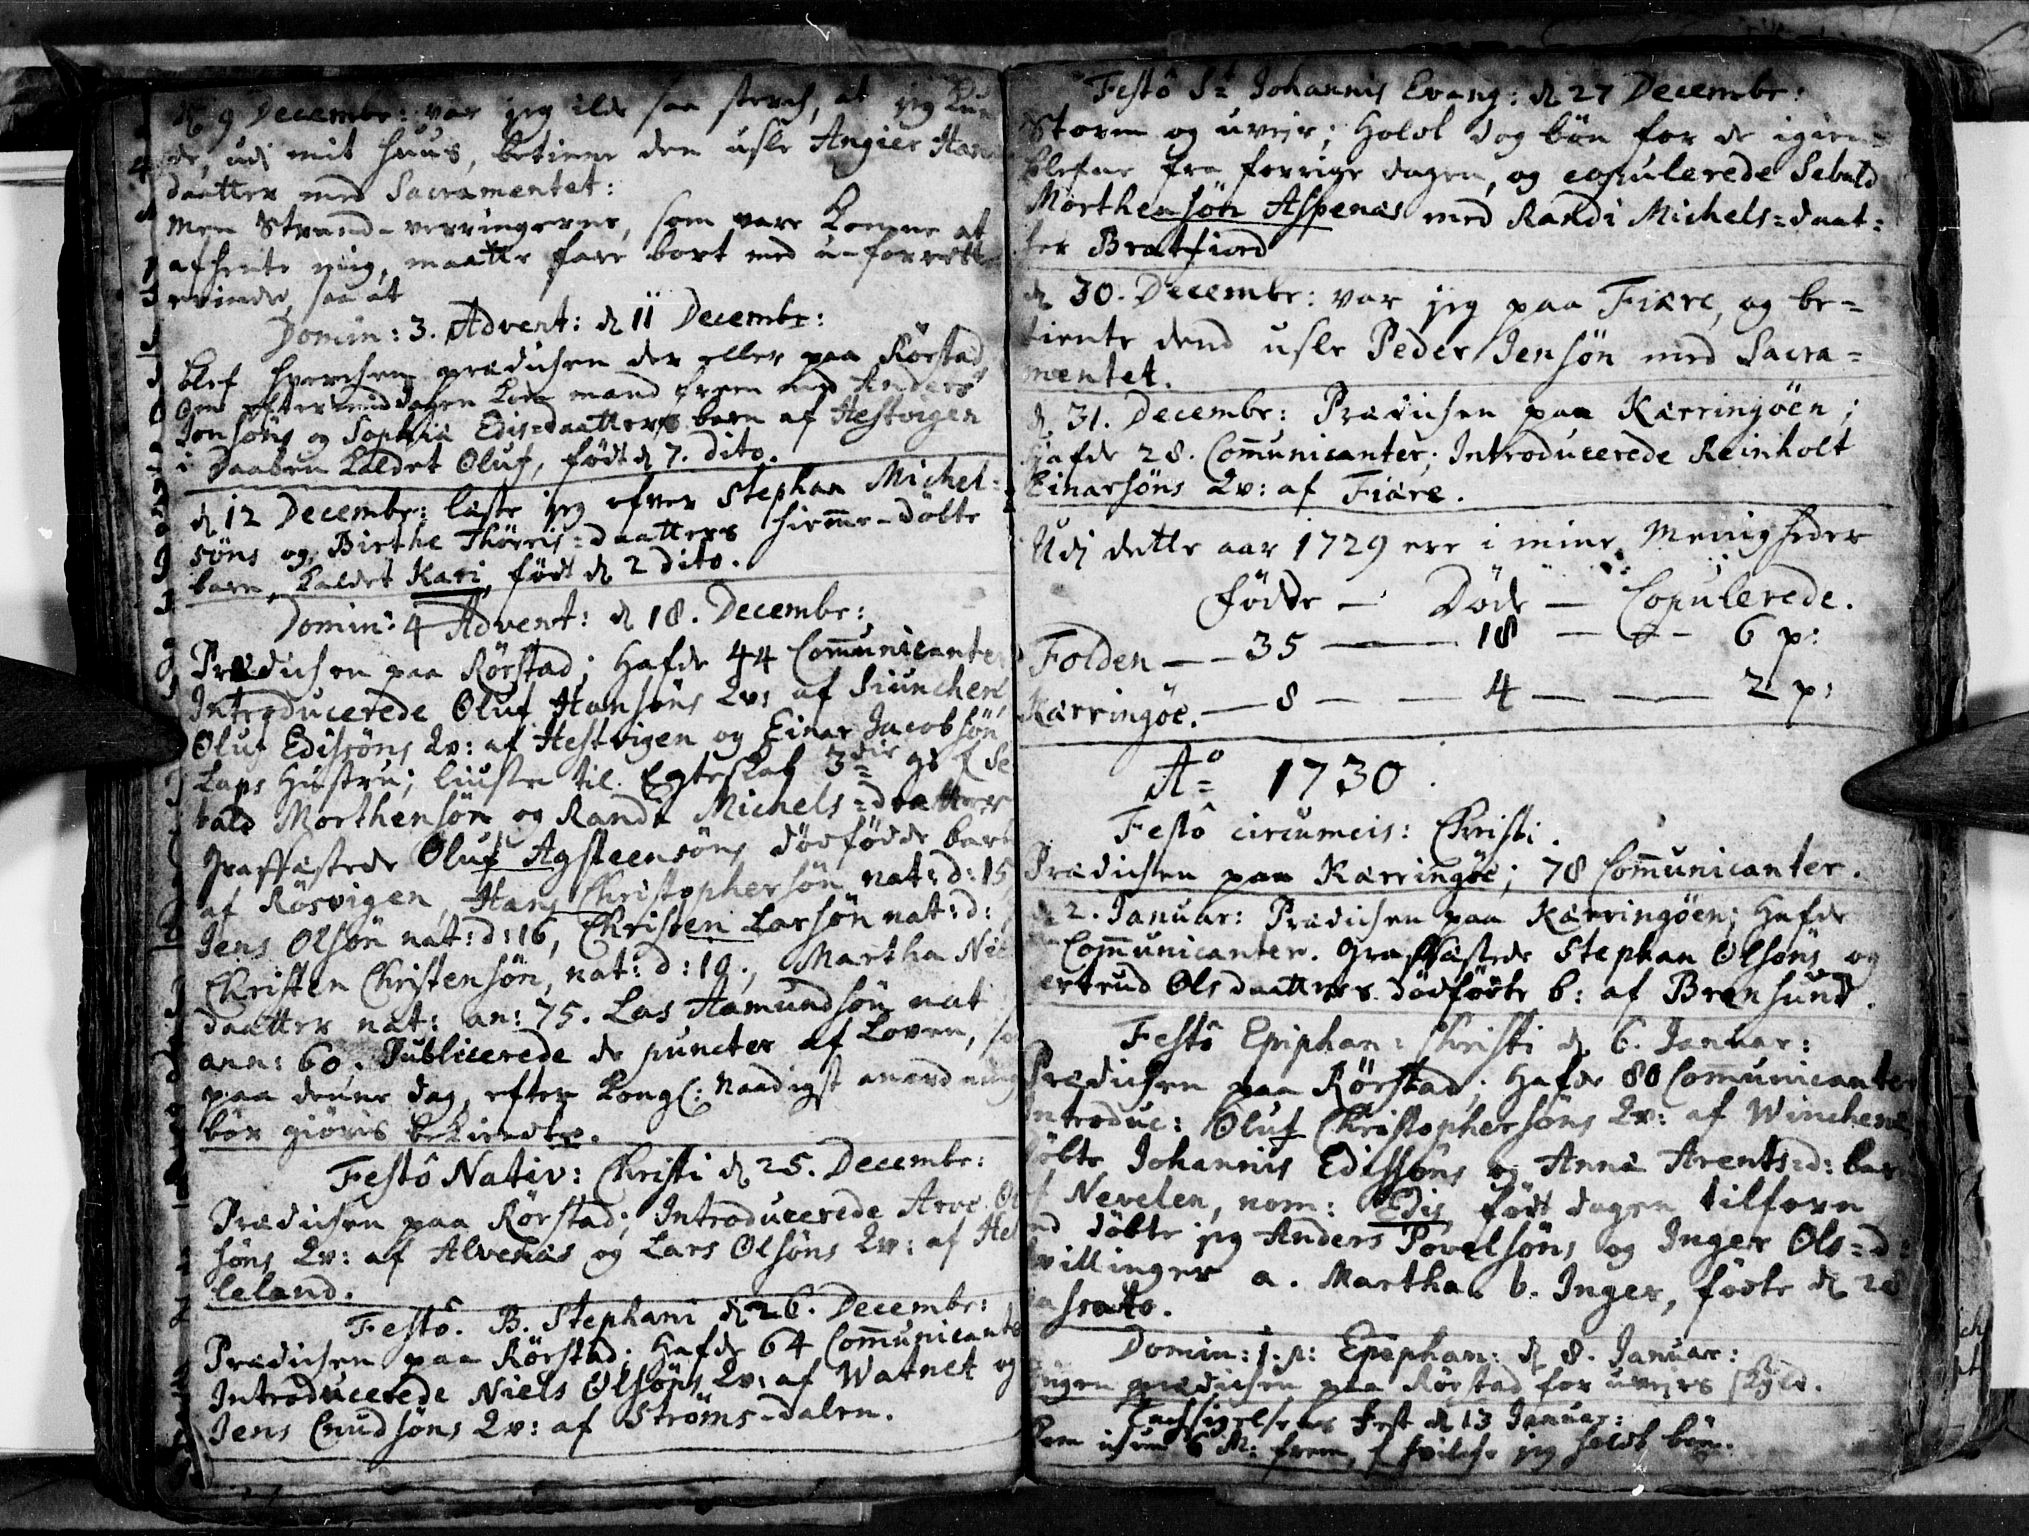 d 9 Decembr: var jeg ilde saa sterch, at jeg kun-
de, udj mit huus, betiene den usle Angier Hans
daatter med Sacramentet:
Men Strand-verringerne, som vare komne at
afhente mig, maatte fare bort med u-forrett
erinde, saa at
Domin: 3. Advent: d 11 Decembr:
blef hverchen prædichen der eller paa Rörstad
Om eftermiddagen kom mand frem med Anders
Jonsöns og Sophia Edis-daatters barn af Hestvigen
i Daaben kaldet Oluf, födt d 7. dito.
d 12 Decembr: læste jeg ofver Stephan Michel-
söns og Birthe Thörris-daatters hiemme-döbte
barn, kaldet Kari, födt d 2 dito.
Domin: 4 Advent: d 18. Decembr:
Prædichen paa Rörstad; Hafde 44 Communicanter
Introducerede Oluf Hansöns Qv: af Siunchen
Oluf Edisöns Qv: af Hestvigen og Einar Jacobsön
Laps Hustru; liuste til Egteskab 3die gs f Se
bald Morthensön og Randi Michels-daatter
Graffæstede Oluf Agsteensöns dödfödde barn
af Rösvigen, Hans Christophersön nat: d: 15
Jens Olsön nat: d: 16, Christen Larsön nat: d:
Christen Christensön, nat: d: 19., Martha Niel
daatter nat: an: 75. Las Hamundsön nat
ann: 60. Publicerede de puncter af Loven, so
paa denne dag, efter Kongl: Naadigst anordning
bör giöris bekiendte.
Festô Nativ: Christi d 25. Decembr:
Prædichen paa Rörstad; Introducerede Arve Ol
söns Qv: af Alvenæs og Lars Olsöns Qv: af Hel
leland.
Festô. B. Stephani d 26. Decembr:
Prædichen paa Rörstad; Hafde 64 Communicants
Introducerede Niels Olsöns Qv: af Watnet og
Jens Cnudsöns Qv: af Ströms-dalen.
Festô St Johannis Evang: d 27 Decembr:
Storm og uvejr; Holdt dog bön for de igien-
blefne fra forrige dagen, og copulerede Sebald
Morthensön Aspenæs med Randi Michels-daat-
ter Bratfiord
d 30. Decembr: var jeg paa Fiære, og be-
tiente dend usle Peder Jensön med Sacra-
mentet.
d. 31. Decembr: Prædichen paa Kærringöen;
Hafde 28. Communicanter; Introducerede Reinholt
Einarsöns Qv: af Fiære.
Udj dette aar 1729 ere i mine Menigheder
födde — Döde — Copulerede.
Folden — — 35 — 18 — — 6 p:
Kærringöe. — 8 — — 4 — — 2 p:
Ao 1730.
Festô circumcis: Christi.
Prædichen paa Kærringöe; 78 Communicanter.
d 2. Januar: Prædichen paa Kærringöen; Hafde
Communicanter. Graffæstede Stephan Olsöns og
ertrud Olsdaatters dödföcte b: af Brensund.
Festô Epiphan: Christi d. 6. Januar:
Prædichen paa Rörstad; Hafde 80 Communicanter
Introduc: Oluf Christophersöns Qv: af Winchen
döbte Johannis Edissöns og Anne Arents-d: barn
af Nevelen, nom: Edis födt dagen tilforn
nd döbte jeg Anders Povelsöns og Inger Ols-d:
tvillinger a. Martha. b. Inger, födte d 28
passato.
Domin: 1. p: Epiphan: d 8. Januar:
Ingen prædichen paa Rörstad for uvejrs skyld.
Tachsigelsens Fest d 13 Januar:
Kom ichun 6 M: frem, f hvilche jeg holdt bön.